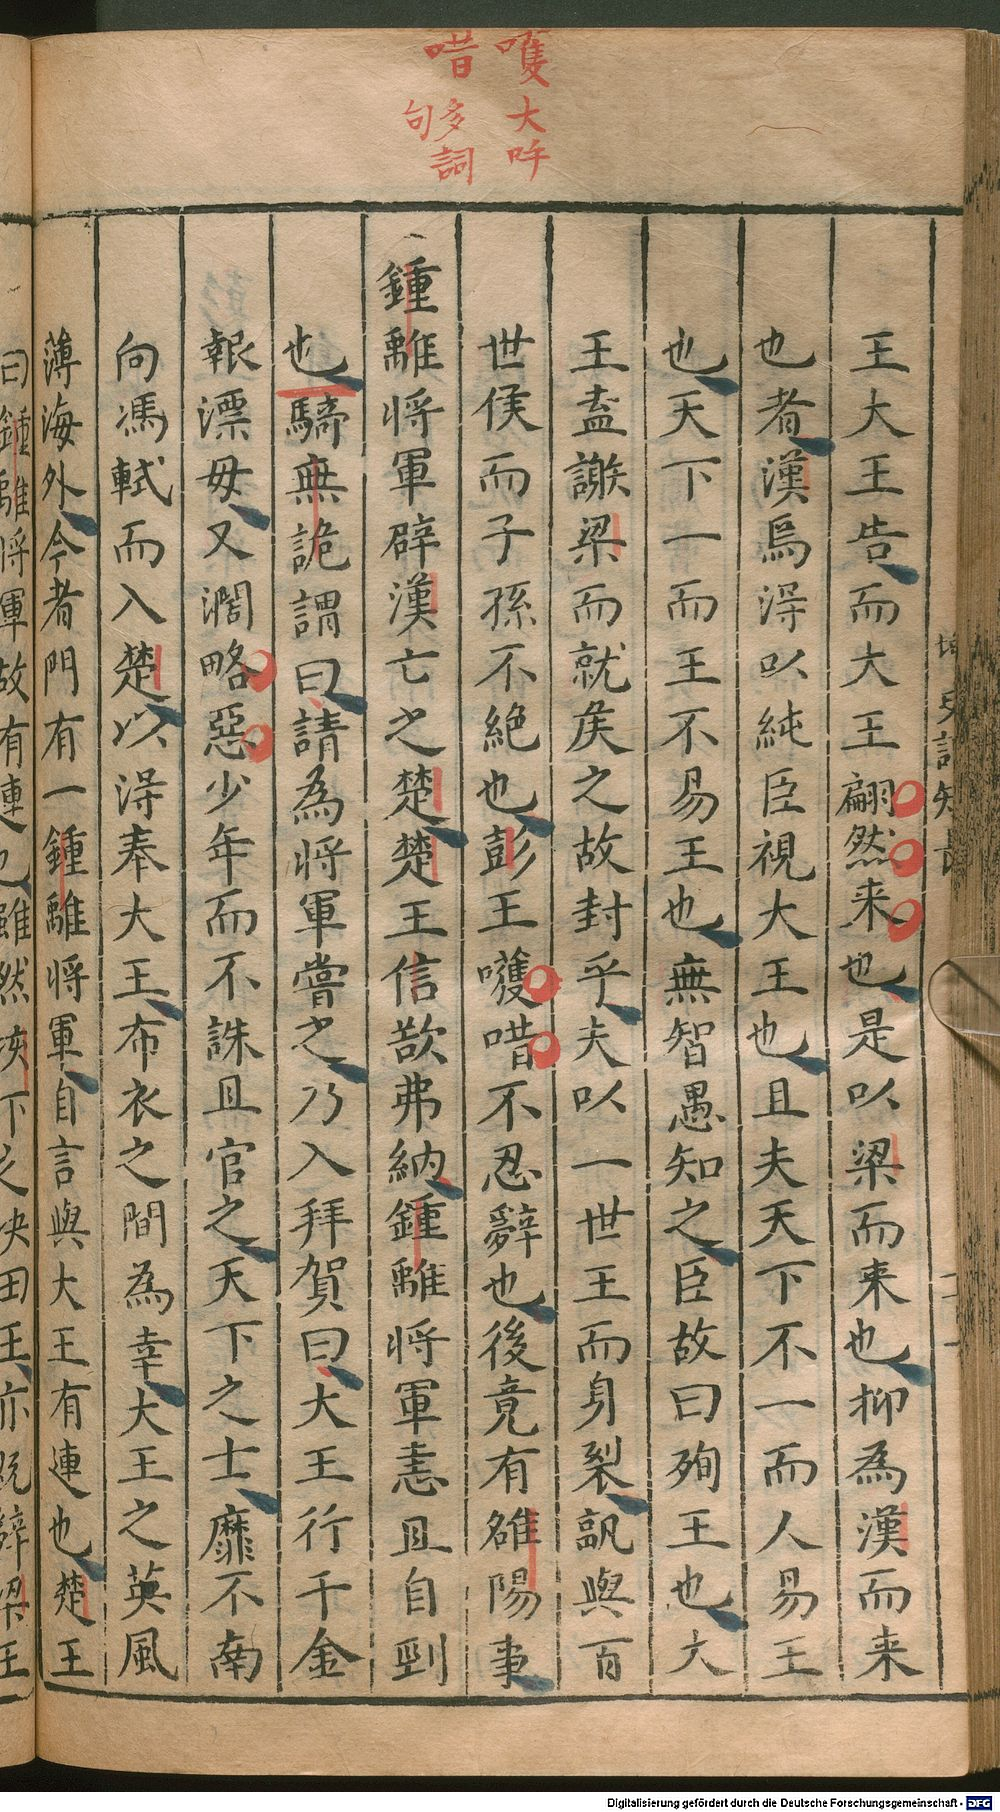 嚄大吽
唶多詞
句
王大王告而大王翩然来也是以梁而来也抑為漢而来
也者漢焉淂以純臣視大王也且夫天下不一而人易王
也天下一而王不易王也無智愚知之臣故曰殉王也大
王盍謝梁而就矦之故封乎夫以一世王而身裂訊與百
世侯而子孫不絶也彭王嚄唶不忍辭也後竟有雒陽事
鍾離将軍辟漢亡之楚楚王信欲弗納鍾離将軍恚且自剄
也騎無詭謂曰請為将軍嘗之乃入拜賀曰大王行千金
報漂母又濶略惡少年而不誅且官之天下之士靡不南
向馮軾而入楚以淂奉大王布衣之間為幸大王之英風
薄海外今者門有一鍾離将軍自言與大王有連也楚王
曰鍾離将軍故有連也雖然 下之 田王亦既辞梁王